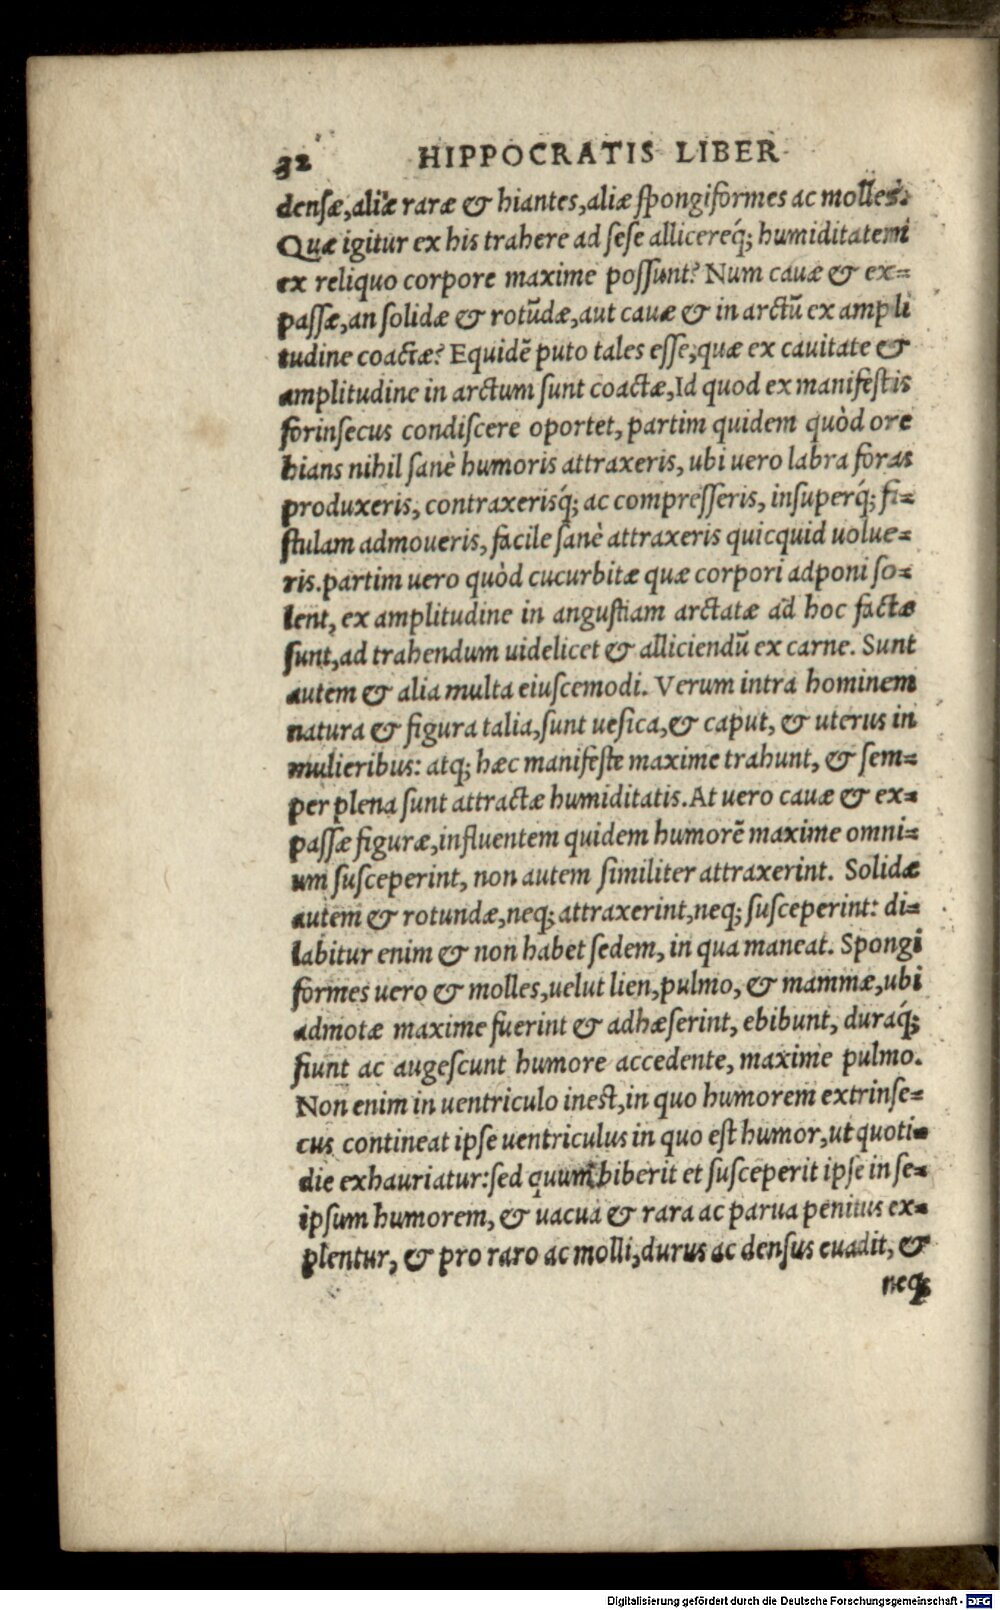 32 HIPPOCRATIS LIBER
densæ, aliæ raræ & hiantes, aliæ spongiformes ac molles.
Quæ igitur ex his trahere ad sese allicereq́; humiditatem
ex reliquo corpore maxime possunt? Num cauæ & ex=
passæ, an solidæ & rotūdæ, aut cauæ & in arctū ex ampli
tudine coactæ? Equidē puto tales esse, quæ ex cauitate &
amplitudine in arctum sunt coactæ, Id quod ex manifestis
forinsecus condiscere oportet, partim quidem quòd ore
hians nihil sanè humoris attraxeris, ubi uero labra foras
produxeris, contraxerisq́; ac compresseris, insuperq́; fi=
stulam admoueris, facile sanè attraxeris quicquid uolue=
ris. partim uero quòd cucurbitæ quæ corpori adponi so=
lent, ex amplitudine in angustiam arctatæ ad hoc factæ
sunt, ad trahendum uidelicet & alliciendū ex carne. Sunt
autem & alia multa eiuscemodi. Verum intra hominem
natura & figura talia, sunt uesica, & caput, & uterus in
mulieribus: atq; hæc manifeste maxime trahunt, & sem=
per plena sunt attractæ humiditatis. At uero cauæ & ex=
passæ figuræ, influentem quidem humorē maxime omni=
um susceperint, non autem similiter attraxerint. Solidæ
autem & rotundæ, neq; attraxerint, neq; susceperint: di=
labitur enim & non habet sedem, in qua maneat. Spongi
formes uero & molles, uelut lien, pulmo, & mammæ, ubi
admotæ maxime fuerint & adhæserint, ebibunt, duraq́;
fiunt ac augescunt humore accedente, maxime pulmo.
Non enim in uentriculo inest, in quo humorem extrinse=
cus contineat ipse uentriculus in quo est humor, ut quoti=
die exhauriatur: sed quum biberit et susceperit ipse in se=
ipsum humorem, & uacua & rara ac parua penitus ex=
plentur, & pro raro ac molli, durus ac densus euadit, &
neq;
Digitalisierung gefördert durch die Deutsche Forschungsgemeinschaft - DFG